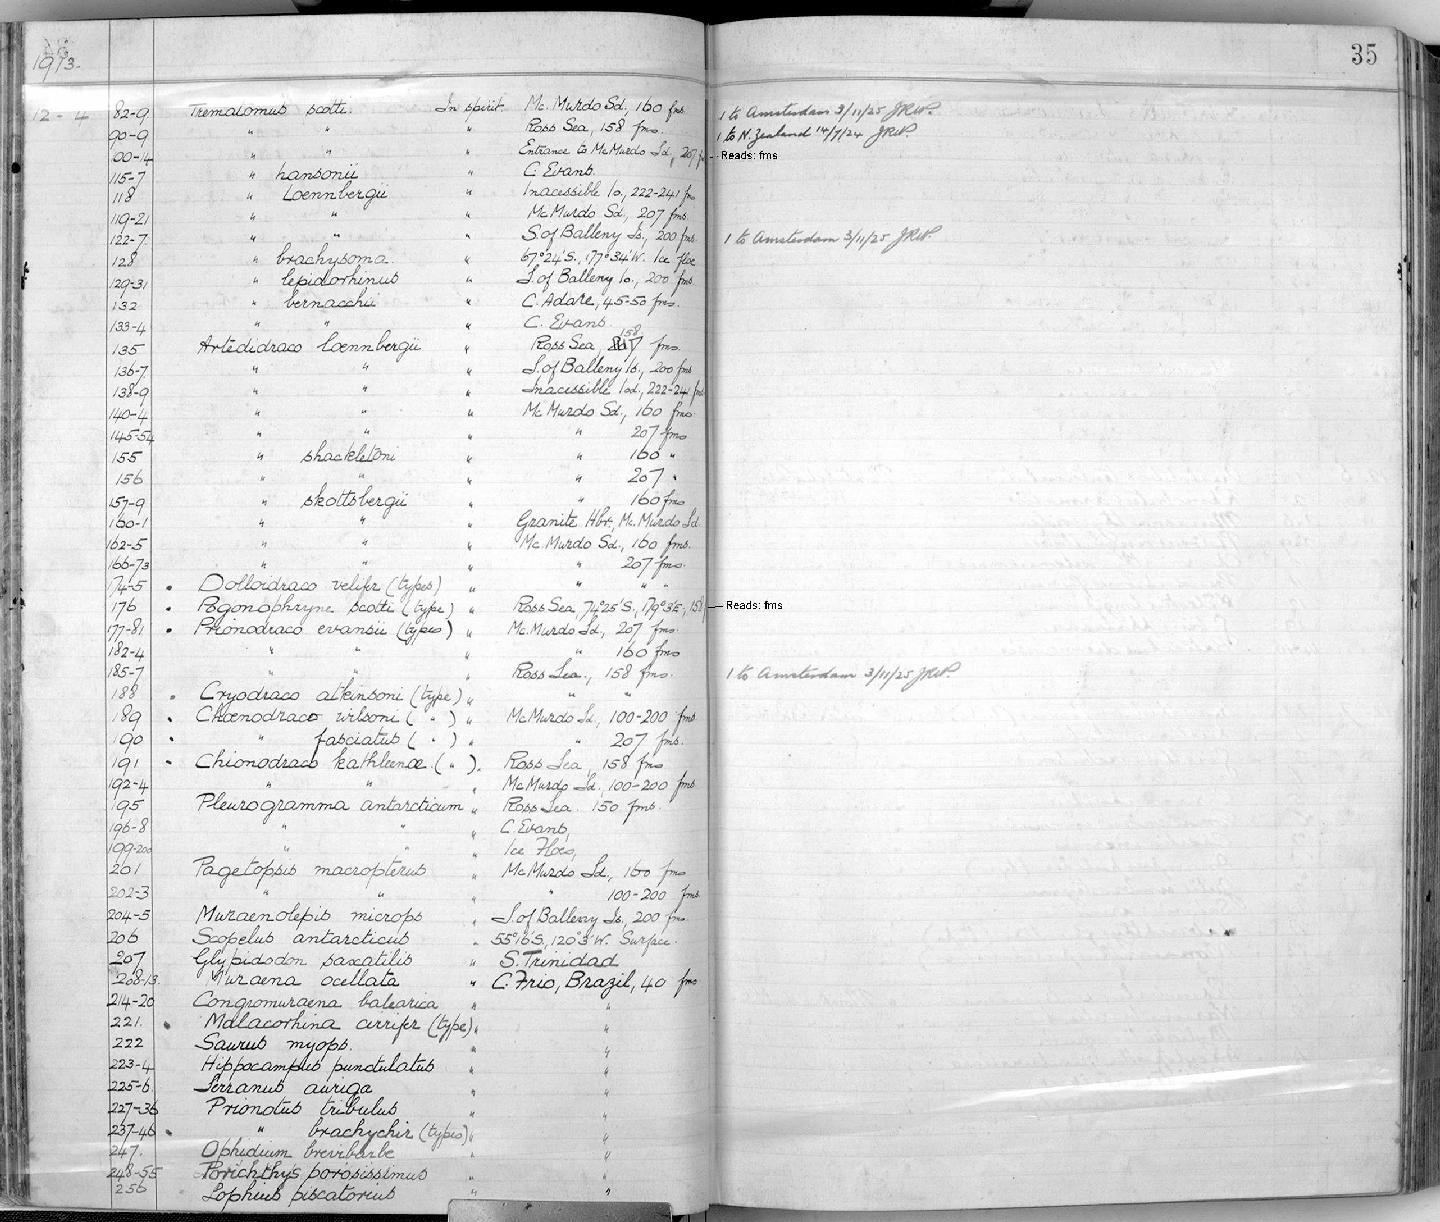 1913.
35
12-4 82-9 Trematomus scotti. In spirit. Mc. Murdo Sd., 160 fms. 1 to Amsterdam 3/11/25 JRN.
90-9 " " " Ross Sea, 158 fms. 1 to N. Zealand 14/7/24 JRN.
100-14 " " " Entrance to Mc Murdo Sd., 207 fms Reads: fms
115-7 " hansonii " C. Evans.
118 " Loennbergii " Inacessible Is., 222-241 fms
119-21 " " " Mc Murdo Sd., 207 fms.
122-7 " " " S. of Balleny Is., 200 fms. 1 to Amsterdam 3/11/25 JRN.
128 " brachysoma. " 67°24'S., 177°34'W. Ice floe
129-31 " lepidorhinus " S. of Balleny Is., 200 fms.
132 " bernacchii " C. Adare, 45-50 fms.
133-4 " " " C. Evans.
135 Artedidraco loennbergii " Ross Sea, 158 fms.
136-7 " " " S. of Balleny Is., 200 fms
138-9 " " " Inacessible Isd., 222-241 fms
140-4 " " " Mc Murdo Sd., 160 fms.
145-54 " " " " 207 fms
155 " shackletoni " " 160 "
156 " " " " 207 "
157-9 " skottsbergii " " 160 fms
160-1 " " " Granite Hbr., Mc. Murdo Sd.
162-5 " " " Mc. Murdo Sd., 160 fms.
166-73 " " " " 207 fms.
174-5 • Dolloidraco velifer (types) " " " "
176 • Pogonophryne scotti (type) " Ross Sea, 74°25'S., 179°3'E., 158 Reads: fms
177-81 • Prionodraco evansii (types) " Mc. Murdo Sd., 207 fms.
182-4 " " " " 160 fms
185-7 " " " Ross Sea., 158 fms. 1 to Amsterdam 3/11/25 JRN.
188 • Cryodraco atkinsoni (type) " " "
189 • Chænodraco wilsoni ( " ) " Mc Murdo Sd., 100-200 fms
190 • " fasciatus ( " ) " " 207 fms.
191 • Chionodraco kathleenæ. ( " ) " Ross Sea, 158 fms
192-4 " " " Mc Murdo Sd., 100-200 fms
195 Pleurogramma antarcticum " Ross Sea. 150 fms.
196-8 " " " C. Evans,
199-200 " " " Ice Floes,
201 Pagetopsis macropterus " Mc Murdo Sd., 160 fms
202-3 " " " " 100-200 fms.
204-5 Muraenolepis microps " S. of Balleny Is., 200 fms.
206 Scopelus antarcticus " 55°16'S., 120°3'W. Surface.
207 Glypidodon saxatilis " S. Trinidad
208-13. Muraena ocellata " C. Frio, Brazil, 40 fms
214-20 Congromuraena balearica " "
221. • Malacorhina cirrifer (type) " "
222 Saurus myops. " "
223-4 Hippocampus punctulatus " "
225-6 Serranus auriga " "
227-36 Prionotus tribulus " "
237-46 • " brachychir (types) " "
247. Ophidium brevibarbe " "
248-55 Porichthys porosissimus " "
256 Lophius piscatorius " "